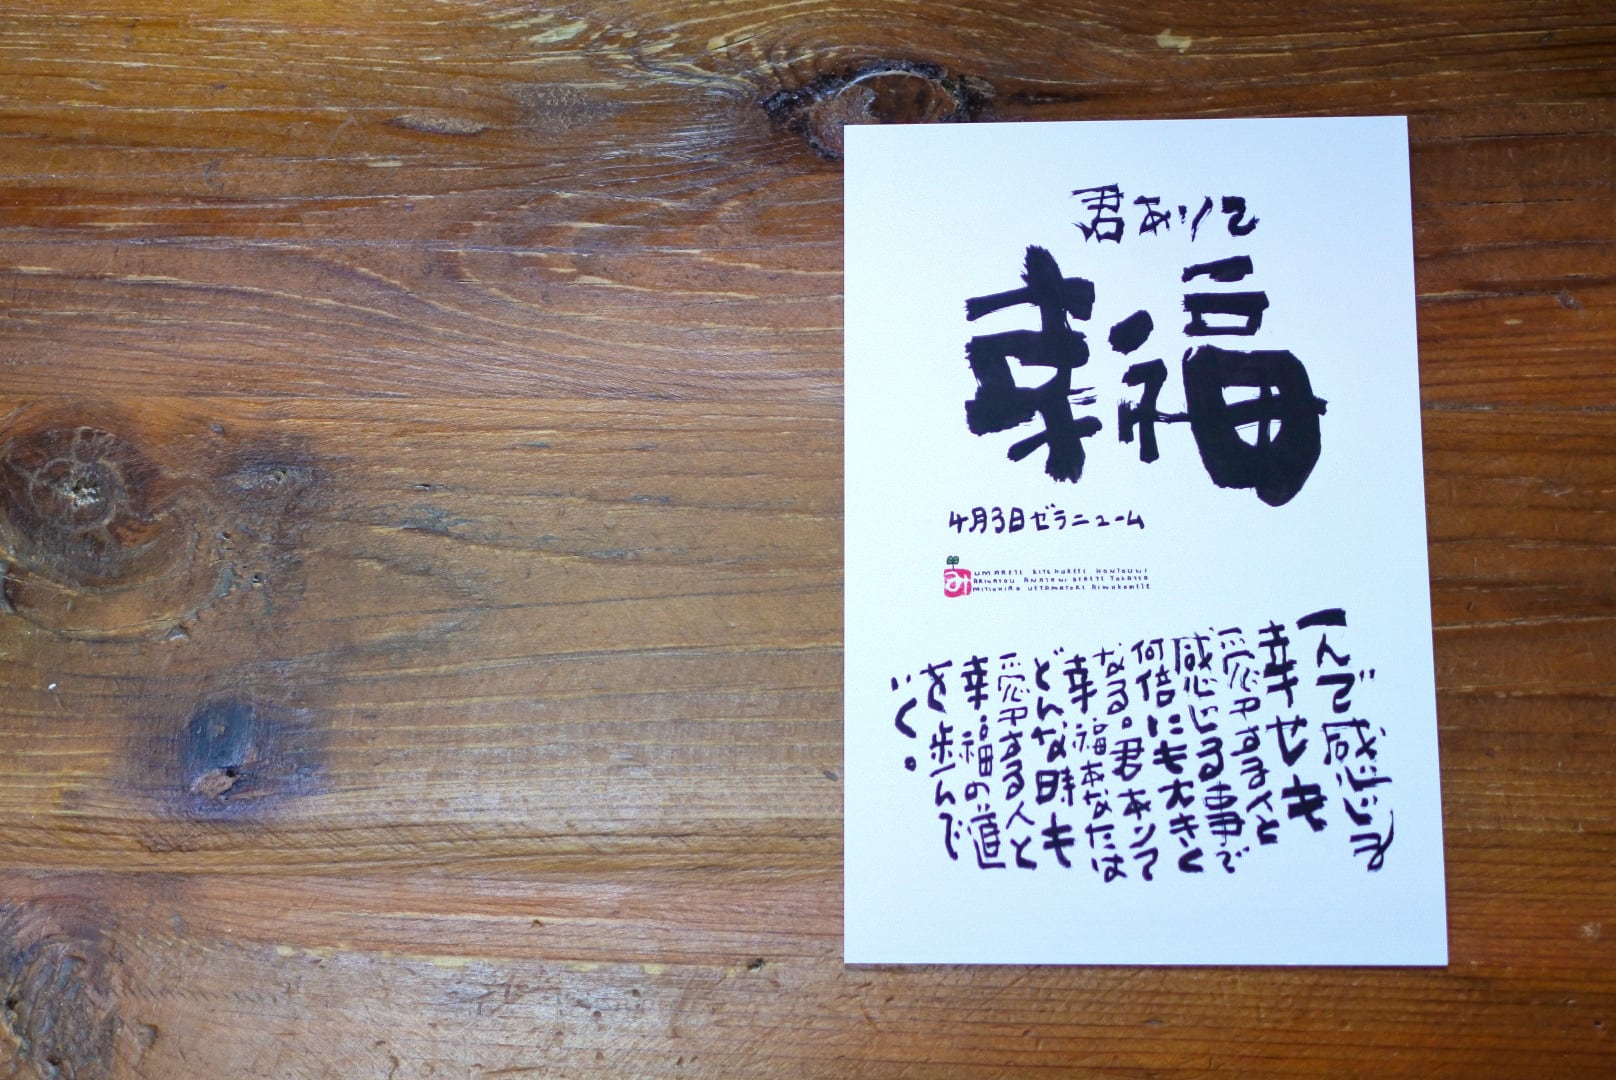 君ありて
幸福
4月3日ゼラニューム
み
UMARETE KITEKURETE HONTOUNI
ARIGATOU ANATANI DEAETE YOKATTA
MITUHIRO UETAMATORI
一人で感じる
幸せも
愛する人と
感じる事で
何倍にも大きく
なる。君ありて
幸福あなたは
どんな時も
愛する人と
幸福の道
を歩んで
いく。